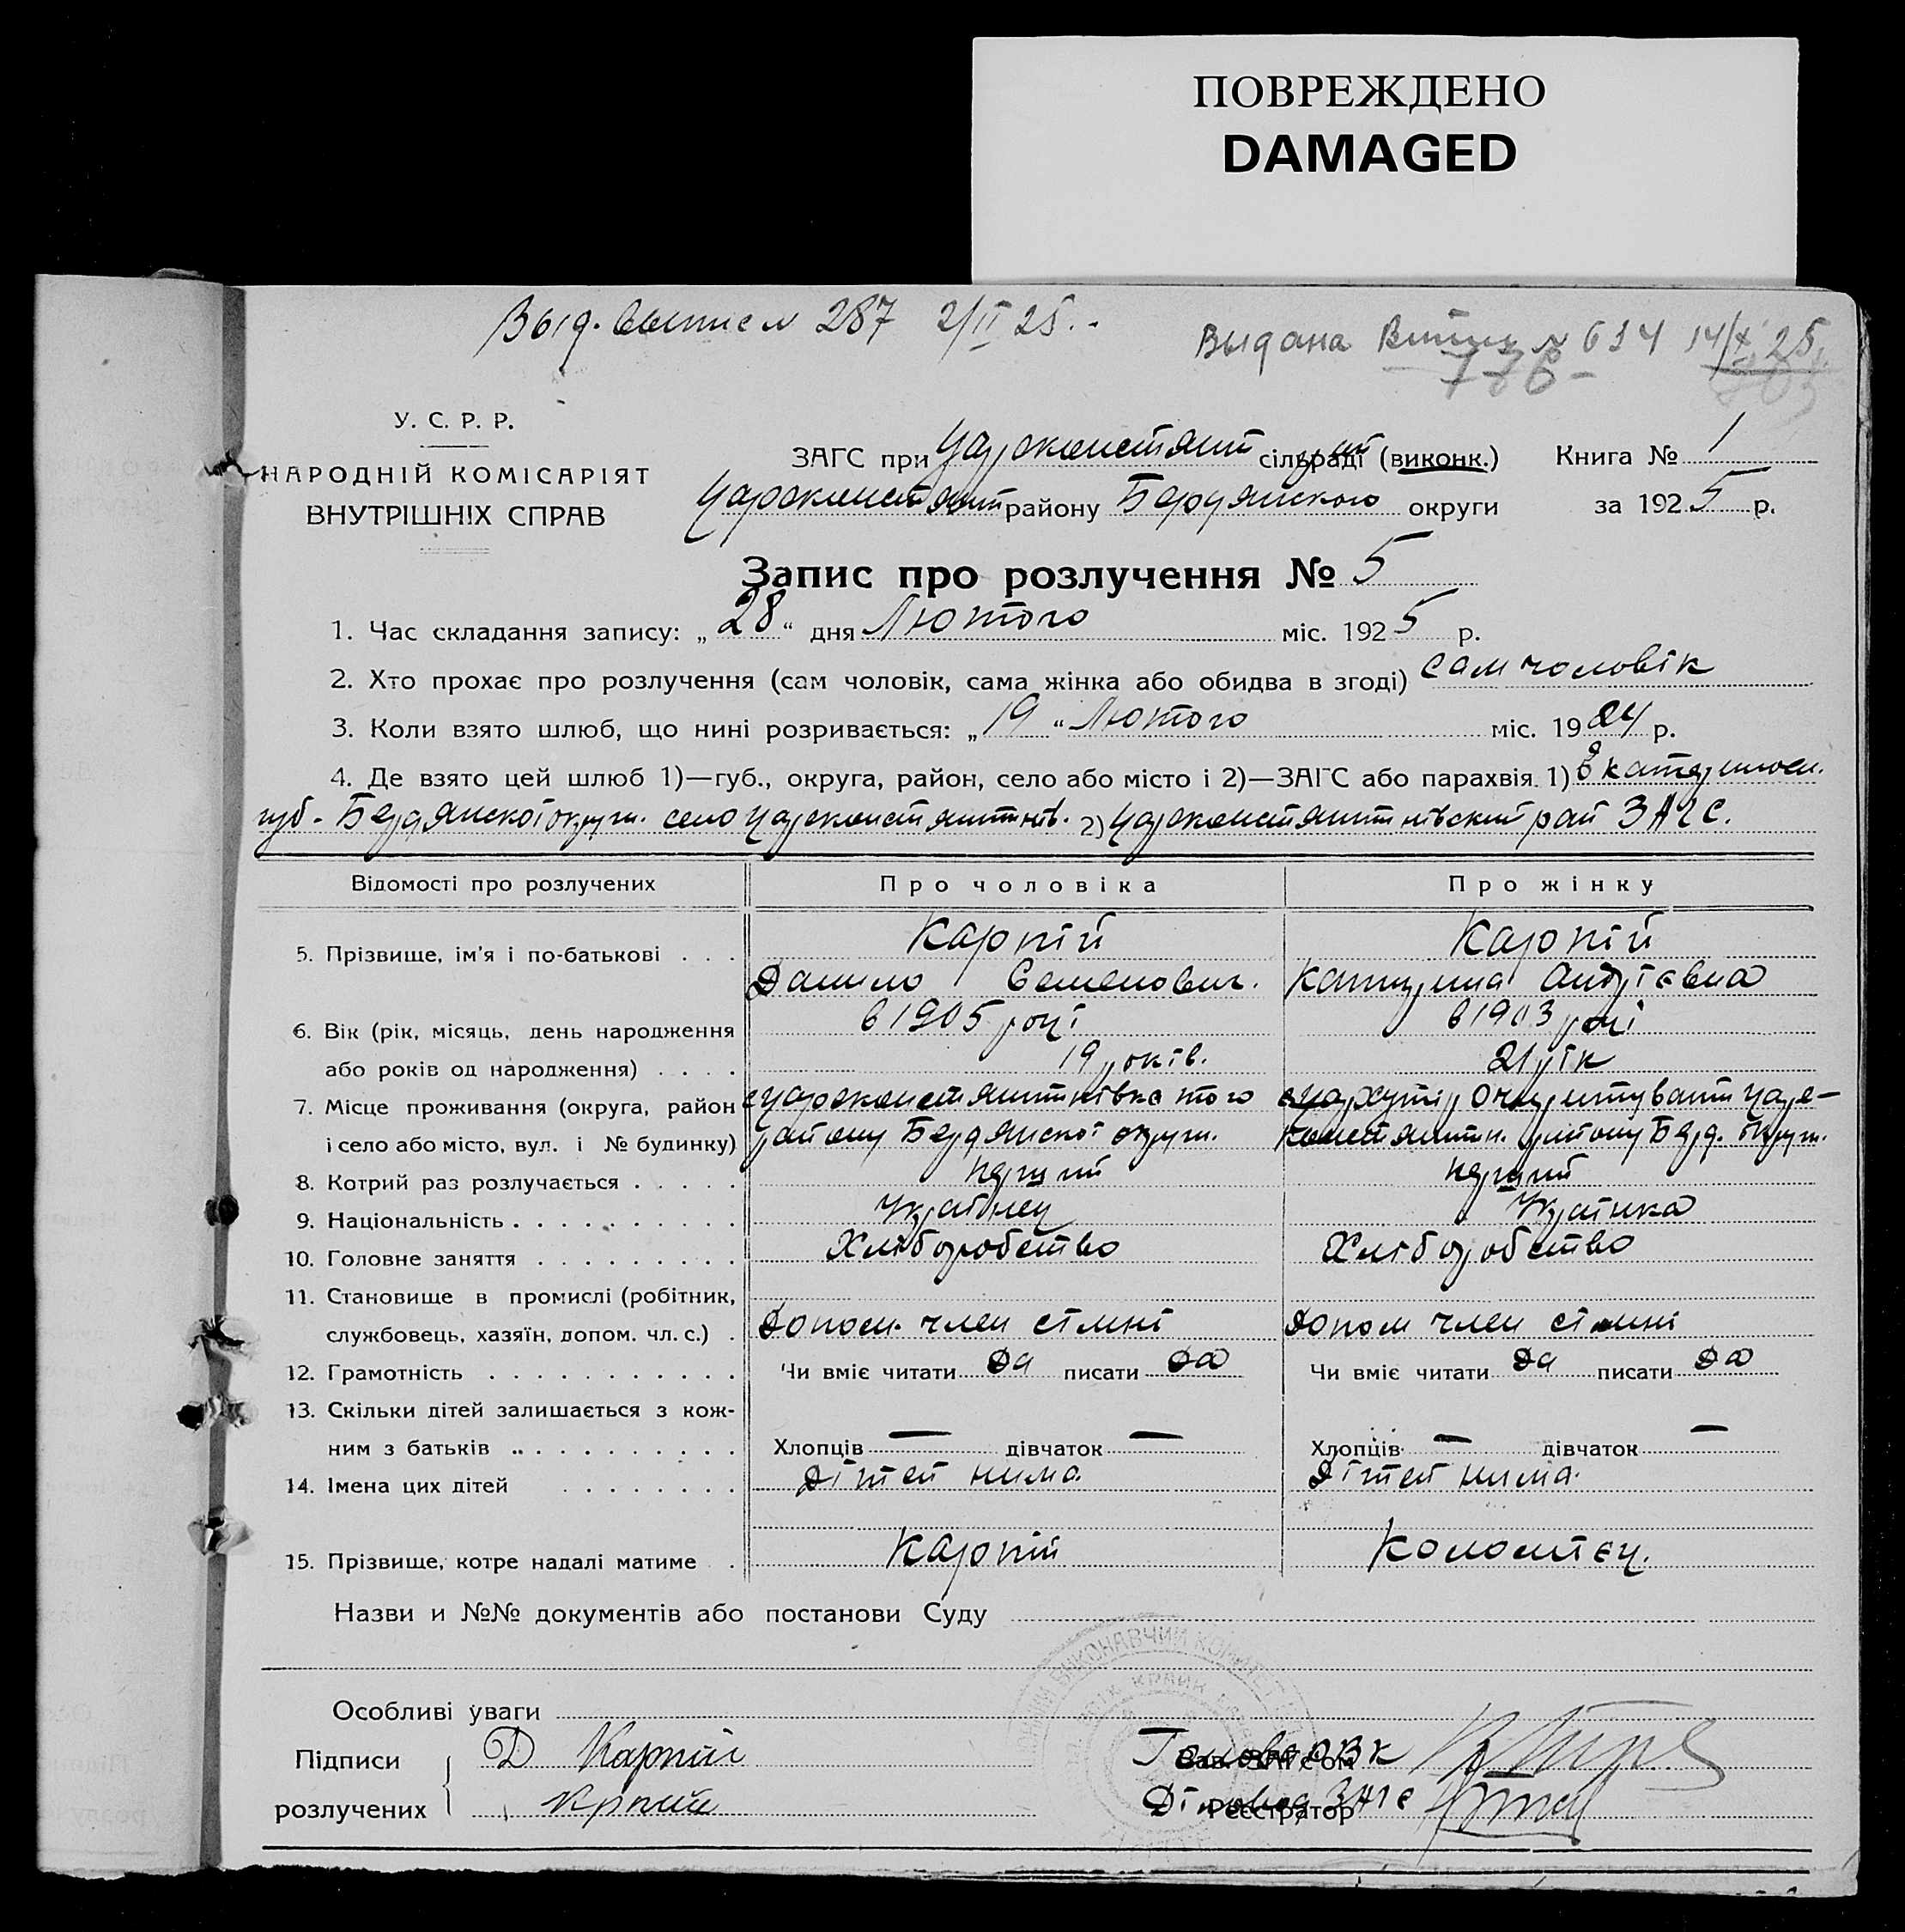 ПОВРЕЖДЕНО
DAMAGED
Выд. выпис № 287 2/II 25.
Выдана № 614 14/X 25
776
У. С. Р. Р.
НАРОДНІЙ КОМІСАРІЯТ
ВНУТРІШНІХ СПРАВ
ЗАГС при Царсконстянт сільраді (виконк.) Книга № 1
Царсконстянт району Бердянского округи за 1925 р.
Запис про розлучення № 5
1. Час складання запису: „28“ дня Лютого міс. 1925 р.
2. Хто прохає про розлучення (сам чоловік, сама жінка або обидва в згоді) сам чоловік
3. Коли взято шлюб, що нині розривається: „19“ Лютого міс. 1924 р.
4. Де взято цей шлюб 1)—губ., округа, район, село або місто і 2)—ЗАГС або парахвія. 1)
губ. Бердянскої округи. село Царсконстянтинів. 2) Царсконстянтинівский рай ЗАГС.
Відомості про розлучених Про чоловіка Про жінку
5. Прізвище, ім'я і по-батькові . . . Карпій Карпій
Данило Семенович. Катерина Андрієвна
6. Вік (рік, місяць, день народження в 1905 році в 1903 році
або років од народження) . . . . 19 років. 21 рік
7. Місце проживання (округа, район с Царсконстянтинівка того хутір Царе-
і село або місто, вул. і № будинку) району Бердянскої округи. констянтин. району Берд. округи.
8. Котрий раз розлучається . . . . . перший перший
9. Національність . . . . . . . . . . Українец Українка
10. Головне заняття . . . . . . . . . Хліборобство Хліборобство
11. Становище в промислі (робітник,
службовець, хазяїн, допом. чл. с.) . Допом. член сімні Допом член сімні
12. Грамотність . . . . . . . . . . . Чи вміє читати Да писати Да Чи вміє читати Да писати Да
13. Скільки дітей залишається з кож-
ним з батьків . . . . . . . . . . . Хлопців — дівчаток — Хлопців — дівчаток —
14. Імена цих дітей . . . . . . . . Дітей нима Дітей нима.
15. Прізвище, котре надалі матиме . Карпій Коломієц.
Назви и №№ документів або постанови Суду
Особливі уваги
Підписи Д Карпій Голова РВК Зав. ЗАГС'ом
розлучених Крпий Діловод ЗАГС Реєстратор